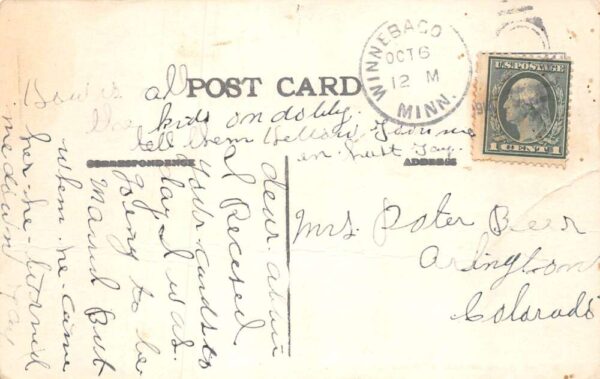 POST CARD
WINNEBAGO
OCT 6
12 M
MINN.
U.S. POSTAGE
1 CENT 1
CORRESPONDENCE
ADDRESS
How is all
the kids on dobby.
tell them hellow
in hast
dear
I Recesed
your cards to
day I was
going to be
Maried But
when he came
her he
me down
Mrs. Peter Beer
Arlington
Colorado